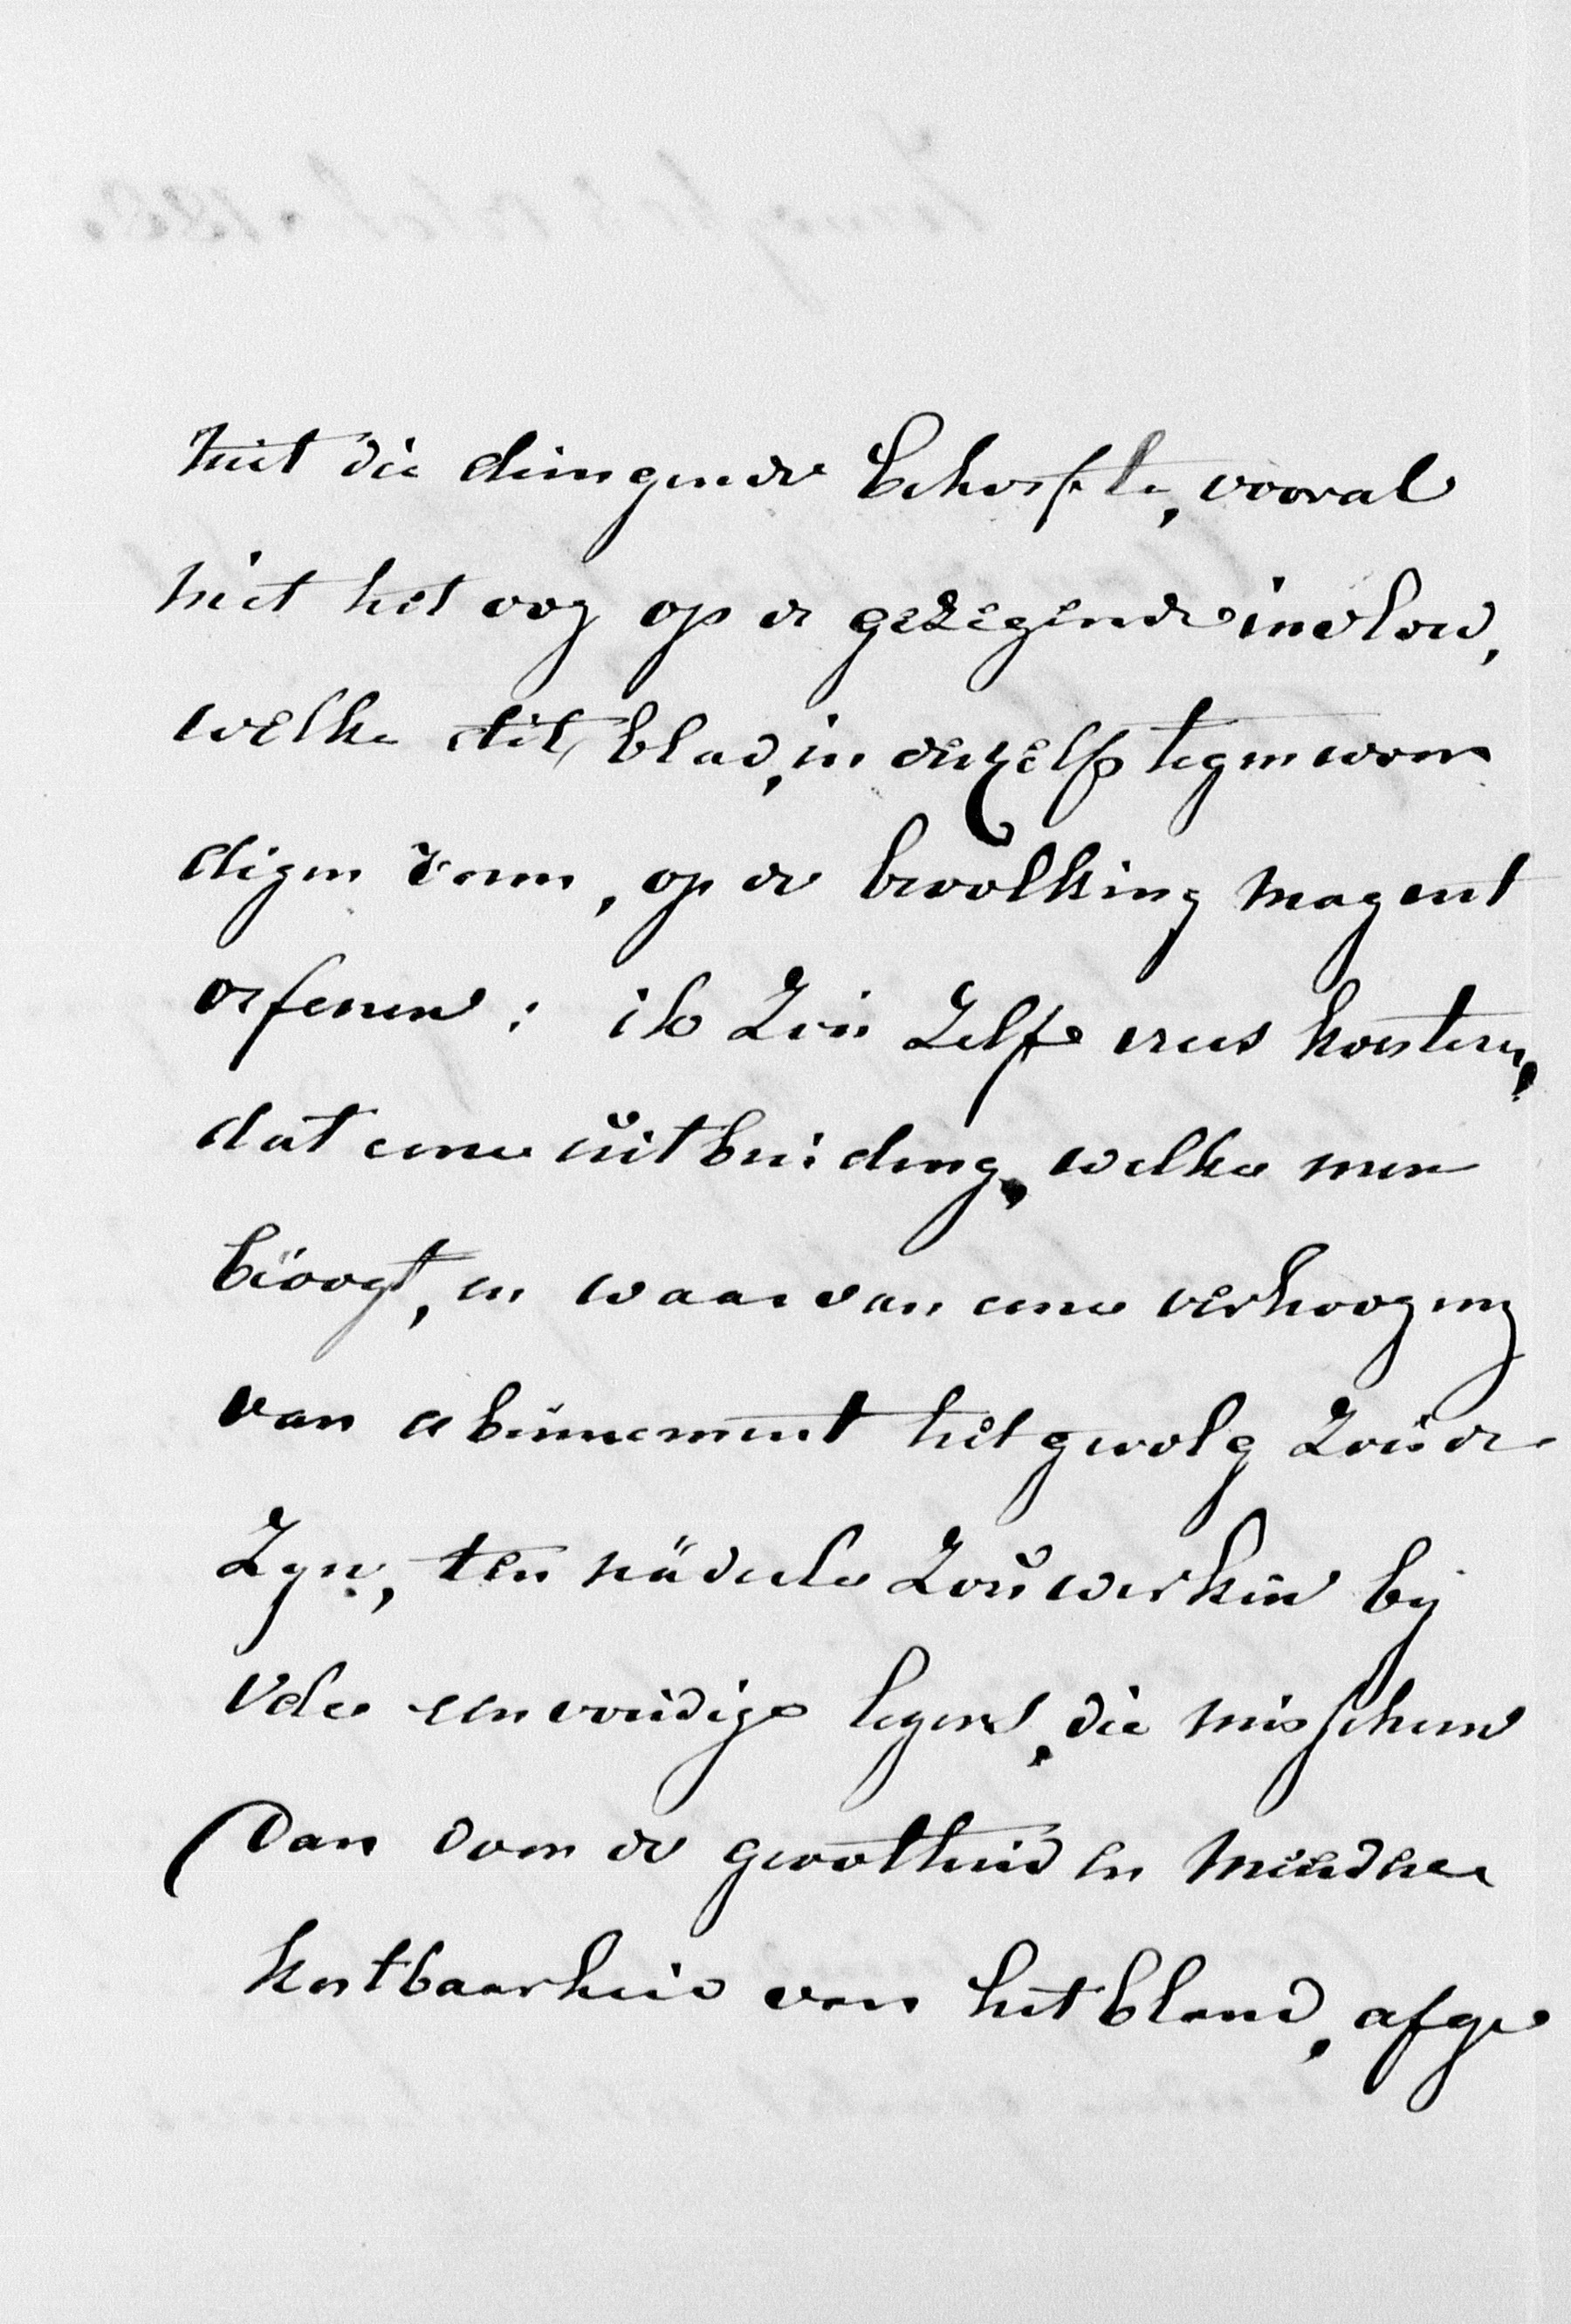 niet die dringende behoefte, vooral
met het oog op de gezegende invloed,
welke dit blad, in deszelfs tegenwoor
digen vorm, op de bevolking mag uit
oefenen: ik zou zelfs vrees koesteren,
dat eene uitbreiding, welke men
beoogt, en waarvan eene verhooging
van abonnement het gevolg zoude
zyn, ten nadeele zou werken bij
vele eenvoudige lezers, die misschien
dan door de grootheid en meerdere
kostbaarheid van het blad, afge